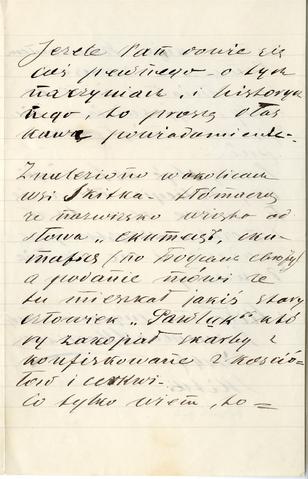 Jeżeli Pan dowie się
coś pewnego o tych
naczyniach, i history-
nego, to proszę o łas
kawe powiadamienie.-
Znaleziono w okolicach
wsi Skitka - tłómaczą
że nazwisko wzięto od
słowa „
a podanie mówi że
tu mieszkał jakiś stary
człowiek „Pawluk" któ
ry zakopał skarby z
konfiskowane z kościo
łów i cerkwi.
Co tylko wiem, to =